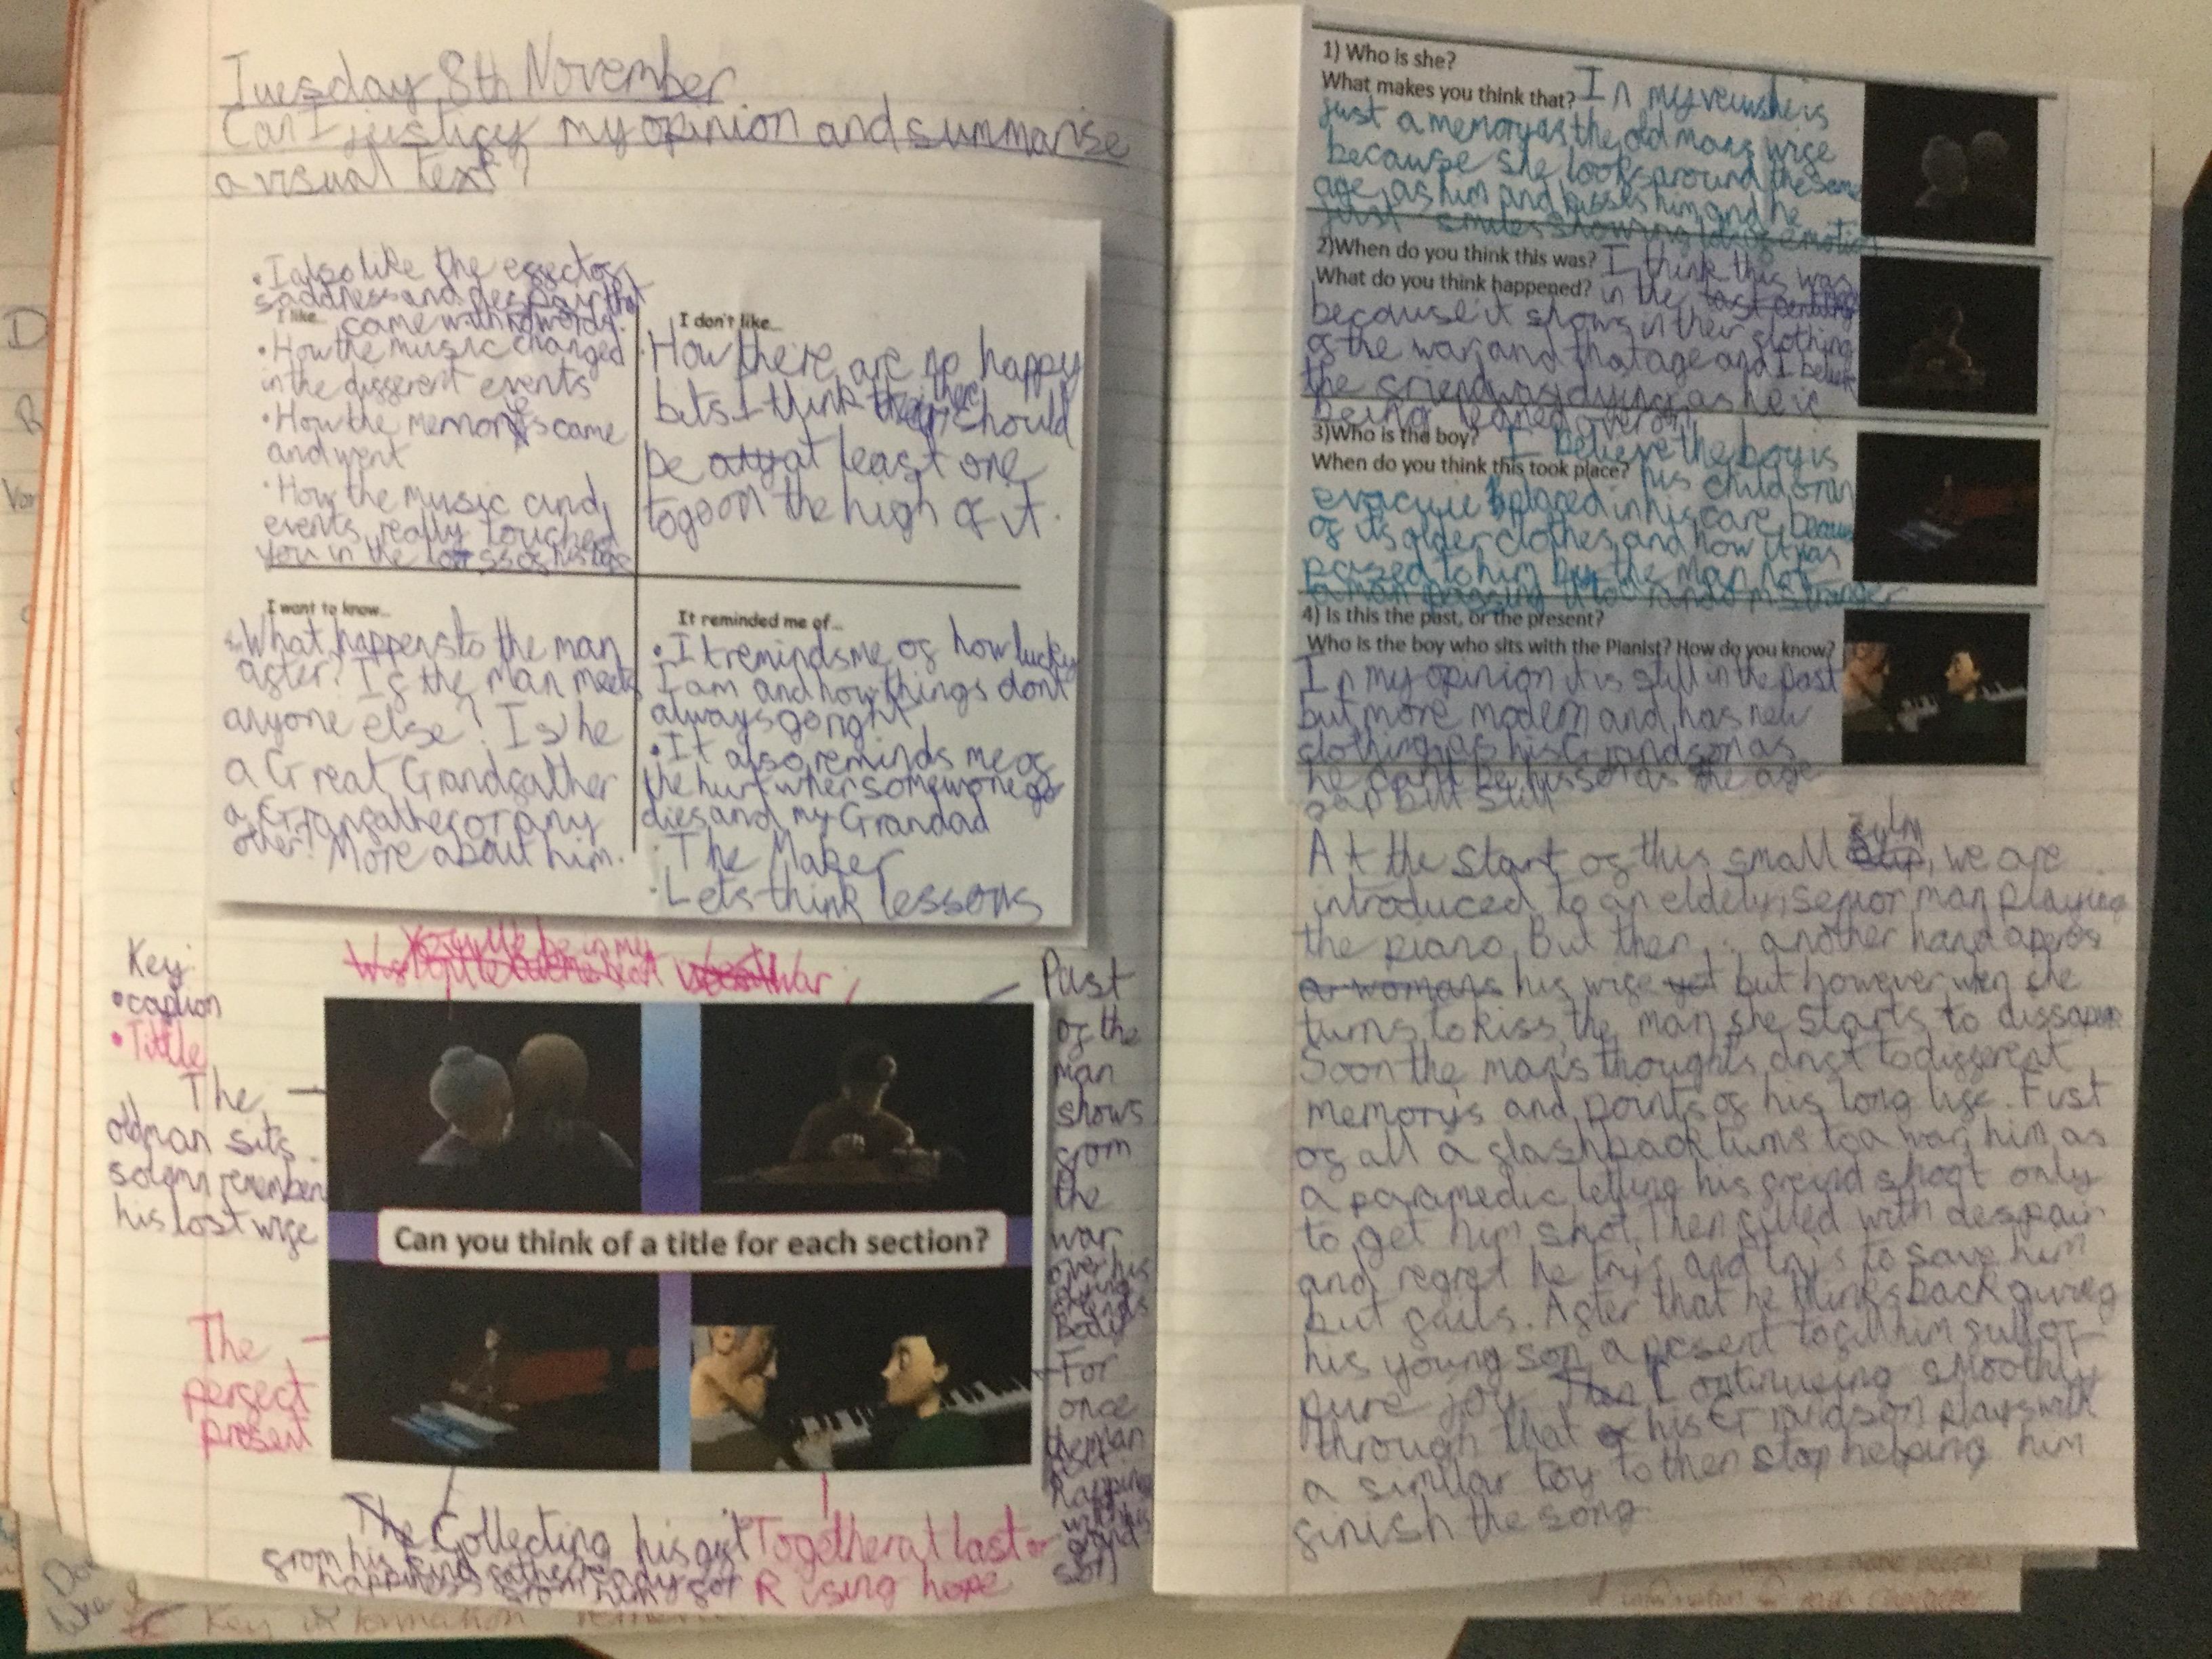 Tuesday 8th November
Can I justify my opinion and summarise
a visual text?
• I also like the effect of
saddness and despair that
I like...
came with no words.
• How the music changed
in the different events
• How the memorys came
and went
• How the music and
events really touched
you in the loss of his life
I don't like...
How there are no happy
bits I think there should
be any at least one
to go on the high of it.
I want to know...
What happens to the man
after? If the man meets
anyone else? Is he
a Great Grandfather
a Granfather or any
other? More about him.
It reminded me of...
• It reminds me of how lucky
I am and how things dont
always go right
• It also reminds me of
the hurt when somewone
dies and my Grandad
• The Maker
• Lets think lessons
Key
• caption
• Tittle
The
old man sits
solemn remembering
his lost wife
The
perfect
present
Past
of the
man
shows
from
the
war
over his
dying
friends
Body
For
once
the man
Happy
with his
grand
son
Can you think of a title for each section?
The Collecting his gift
from his kind father ready for
happiness from him
Together at last or
Rising hope
Key information
1) Who is she?
What makes you think that? In my veiw she is
just a memory as the old mans wife
because she looks around the same
age as him and kisses him and he
just smiles showing loving emotion
2)When do you think this was? I think this was
What do you think happened? in the last century
because it shows in their clothing
of the war and that age and I believe
the friend was dying as he is
being leaned over on
3)Who is the boy? I believe the boy is
When do you think this took place? his child or an
evacuie placed in his care because
of its older clothes and how it was
passed to him by the man not
a man passing it to a random stranger
4) Is this the past, or the present?
Who is the boy who sits with the Pianist? How do you know?
In my opinion it is still in the past
but more modern and has new
clothing as his Grandson as
he cant be his son as the age
gap but still
At the start of this small film, we are
introduced to an eldely, senior man playing
the piano. But then... another hand apears
a womans his wife yet but however wen she
turns to kiss the man she starts to dissapear
Soon the man's thoughts drift to different
memory's and points of his long life. Fist
of all a flashback turns to a war, him as
a paramedic letting his freind shoot only
to get him shot. Then filled with despair
and regret he trys and trys to save him
but fails. After that he thinks back giving
his young son a present to fill him full of
pure joy. Then Continueing smoothly
through that his Grandson plays with
a similar toy to then stop helping him
finish the song.